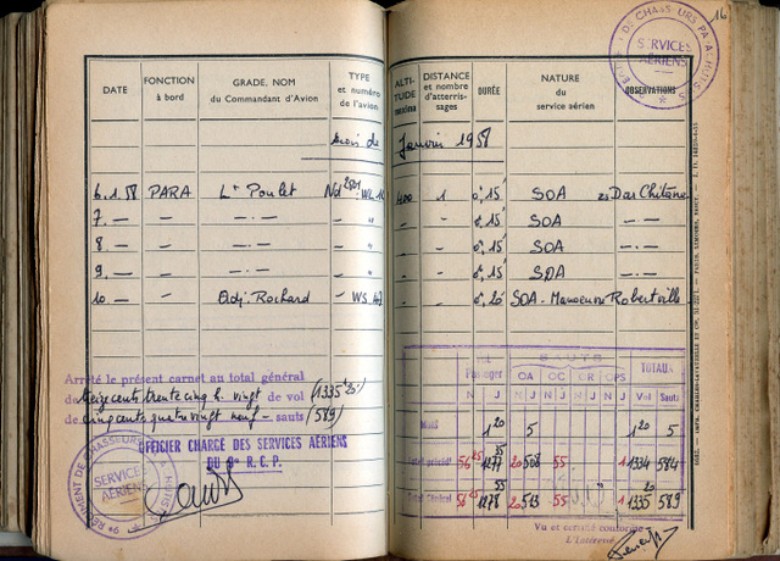 16
DATE FONCTION à bord GRADE, NOM du Commandant d'Avion TYPE et numéro de l'avion ALTITUDE maxima DISTANCE et nombre d'atterrissages DURÉE NATURE du service aérien OBSERVATIONS
SERVICES AÉRIENS
Mois de Janvier 1958
6.1.58 PARA Lt Poulet Nd 2501 400 1 0h,15' SOA Das Chitane
7. — — — . — — " - - 0h,15' SOA — . —
8 — — — . — — " - - 0h,15' SOA — . —
9. — — — . — — " - - 0h,15' SOA — . —
10. — — Adj. Rochard — WS - - 0h,20' SOA - Manoeuvre Robertville
Arrêté le présent carnet au total général
de treize cents trente cinq h. vingt de vol (1335h20')
de cinq cents quatre vingt neuf — sauts (589)
OFFICIER CHARGÉ DES SERVICES AÉRIENS
DU 9e R.C.P.
9e RÉGIMENT DE CHASSEURS PARACHUTISTES
SERVICES AÉRIENS
Passager SAUTS TOTAUX
OA OC CR OPS
N J N J N J N J Vol Sauts
Mois 1 20 5 1 20 5
Total précédt 56 25 1277 35 20 508 55 1 1334 584
Total Général 56 25 1278 55 20 513 55 1 1335 20 589
Vu et certifié conforme
L'Intéressé